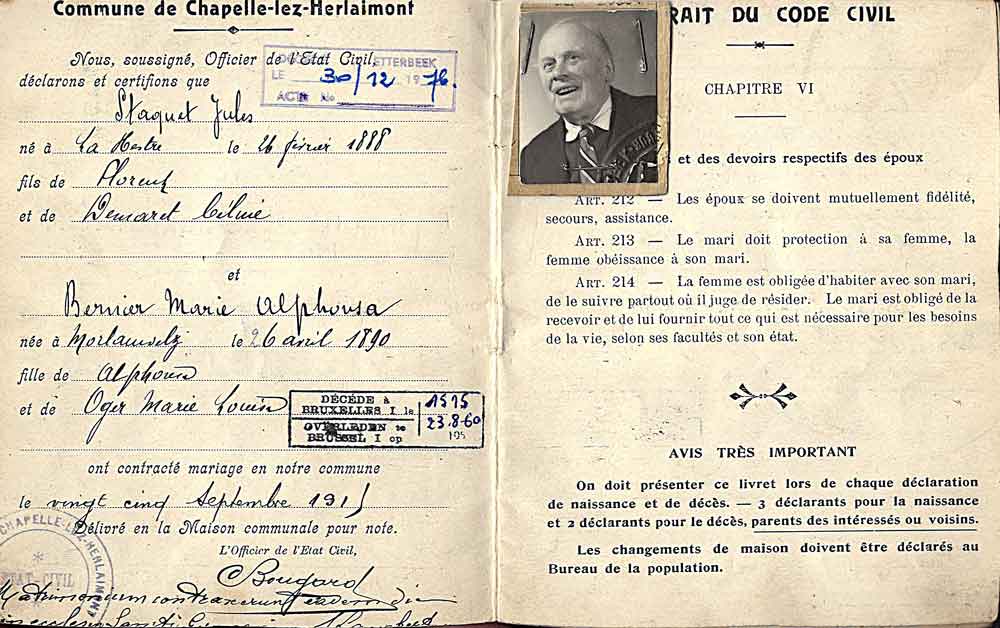 Commune de Chapelle-lez-Herlaimont
Nous, soussigné, Officier de l'Etat Civil,
déclarons et certifions que
ETTERBEEK
LE 30/12 1976.
ACTE No
Staquet Jules
né à La Hestre le 26 février 1888
fils de Florent
et de Demaret Célinie
et
Bernier Marie Alphonsa
née à Morlanwelz le 26 avril 1890
fille de Alphonse
et de Oger Marie Louise
DÉCÉDÉ à
BRUXELLES I le
OVERLEDEN te
BRUSSEL I op
1515
23.8.60
195
ont contracté mariage en notre commune
le vingt cinq Septembre 191
Délivré en la Maison communale pour note.
L'Officier de l'Etat Civil,
C Bougard
CHAPELLE-LEZ-HERLAIMONT
ETAT-CIVIL
Matrimonium contraxerunt eadem die
in ecclesia Sancti
RAIT DU CODE CIVIL
CHAPITRE VI
et des devoirs respectifs des époux
ART. 212 — Les époux se doivent mutuellement fidélité,
secours, assistance.
ART. 213 — Le mari doit protection à sa femme, la
femme obéissance à son mari.
ART. 214 — La femme est obligée d'habiter avec son mari,
de le suivre partout où il juge de résider. Le mari est obligé de la
recevoir et de lui fournir tout ce qui est nécessaire pour les besoins
de la vie, selon ses facultés et son état.
AVIS TRÈS IMPORTANT
On doit présenter ce livret lors de chaque déclaration
de naissance et de décès. — 3 déclarants pour la naissance
et 2 déclarants pour le décès, parents des intéressés ou voisins.
Les changements de maison doivent être déclarés au
Bureau de la population.